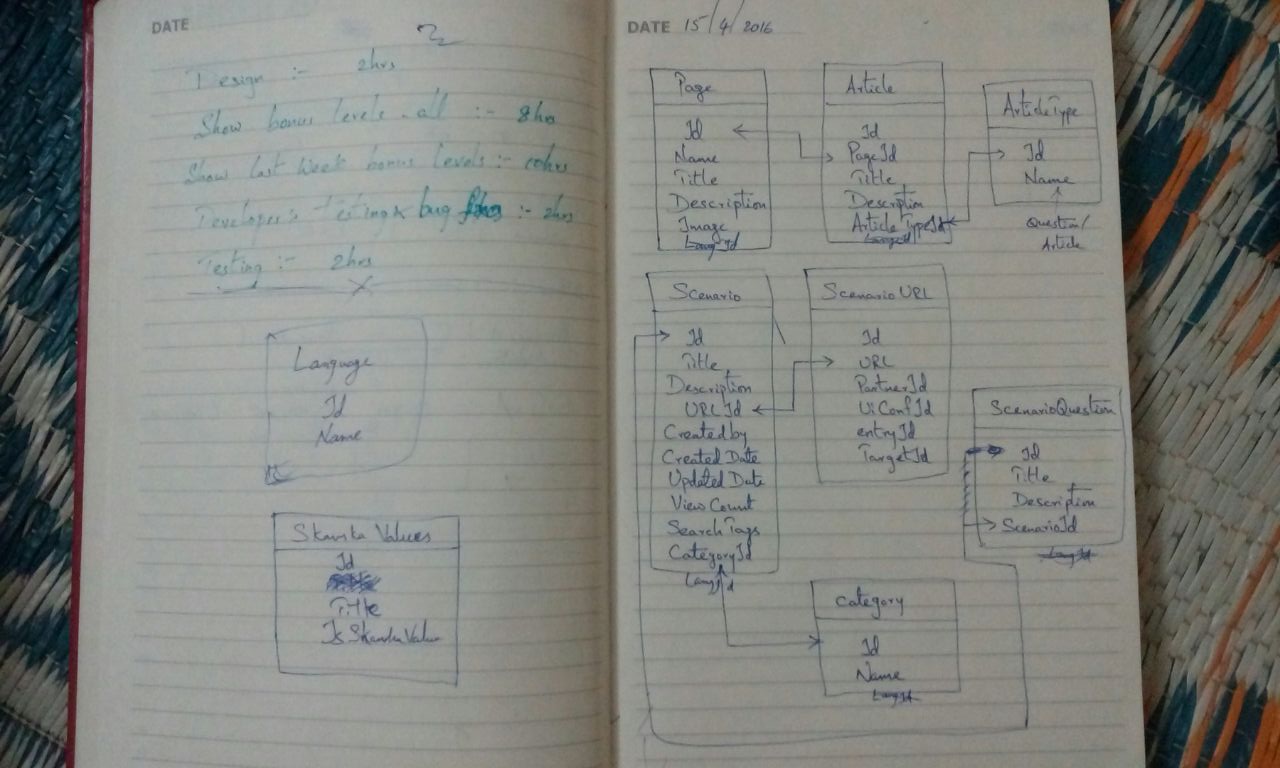 DATE
Design :- 2hrs
Show bonus levels all :- 8hrs
Show last week bonus levels :- 10hrs
Developer's testing & bug fixing :- 2hrs
Testing :- 2hrs
Language
Id
Name
Skanska Values
Id
Title
Is Skanska Value
DATE 15/4/2016
Page
Id
Name
Title
Description
Image
Lang Id
Article
Id
PageId
Title
Description
ArticleTypeId
LangId
ArticleType
Id
Name
Question/
Article
Scenario
Id
Title
Description
URL Id
Created by
Created Date
Updated Date
View Count
Search Tags
CategoryId
LangId
ScenarioURL
Id
URL
PartnerId
UiConfId
entryId
TargetId
ScenarioQuestion
Id
Title
Description
ScenarioId
LangId
Category
Id
Name
LangId